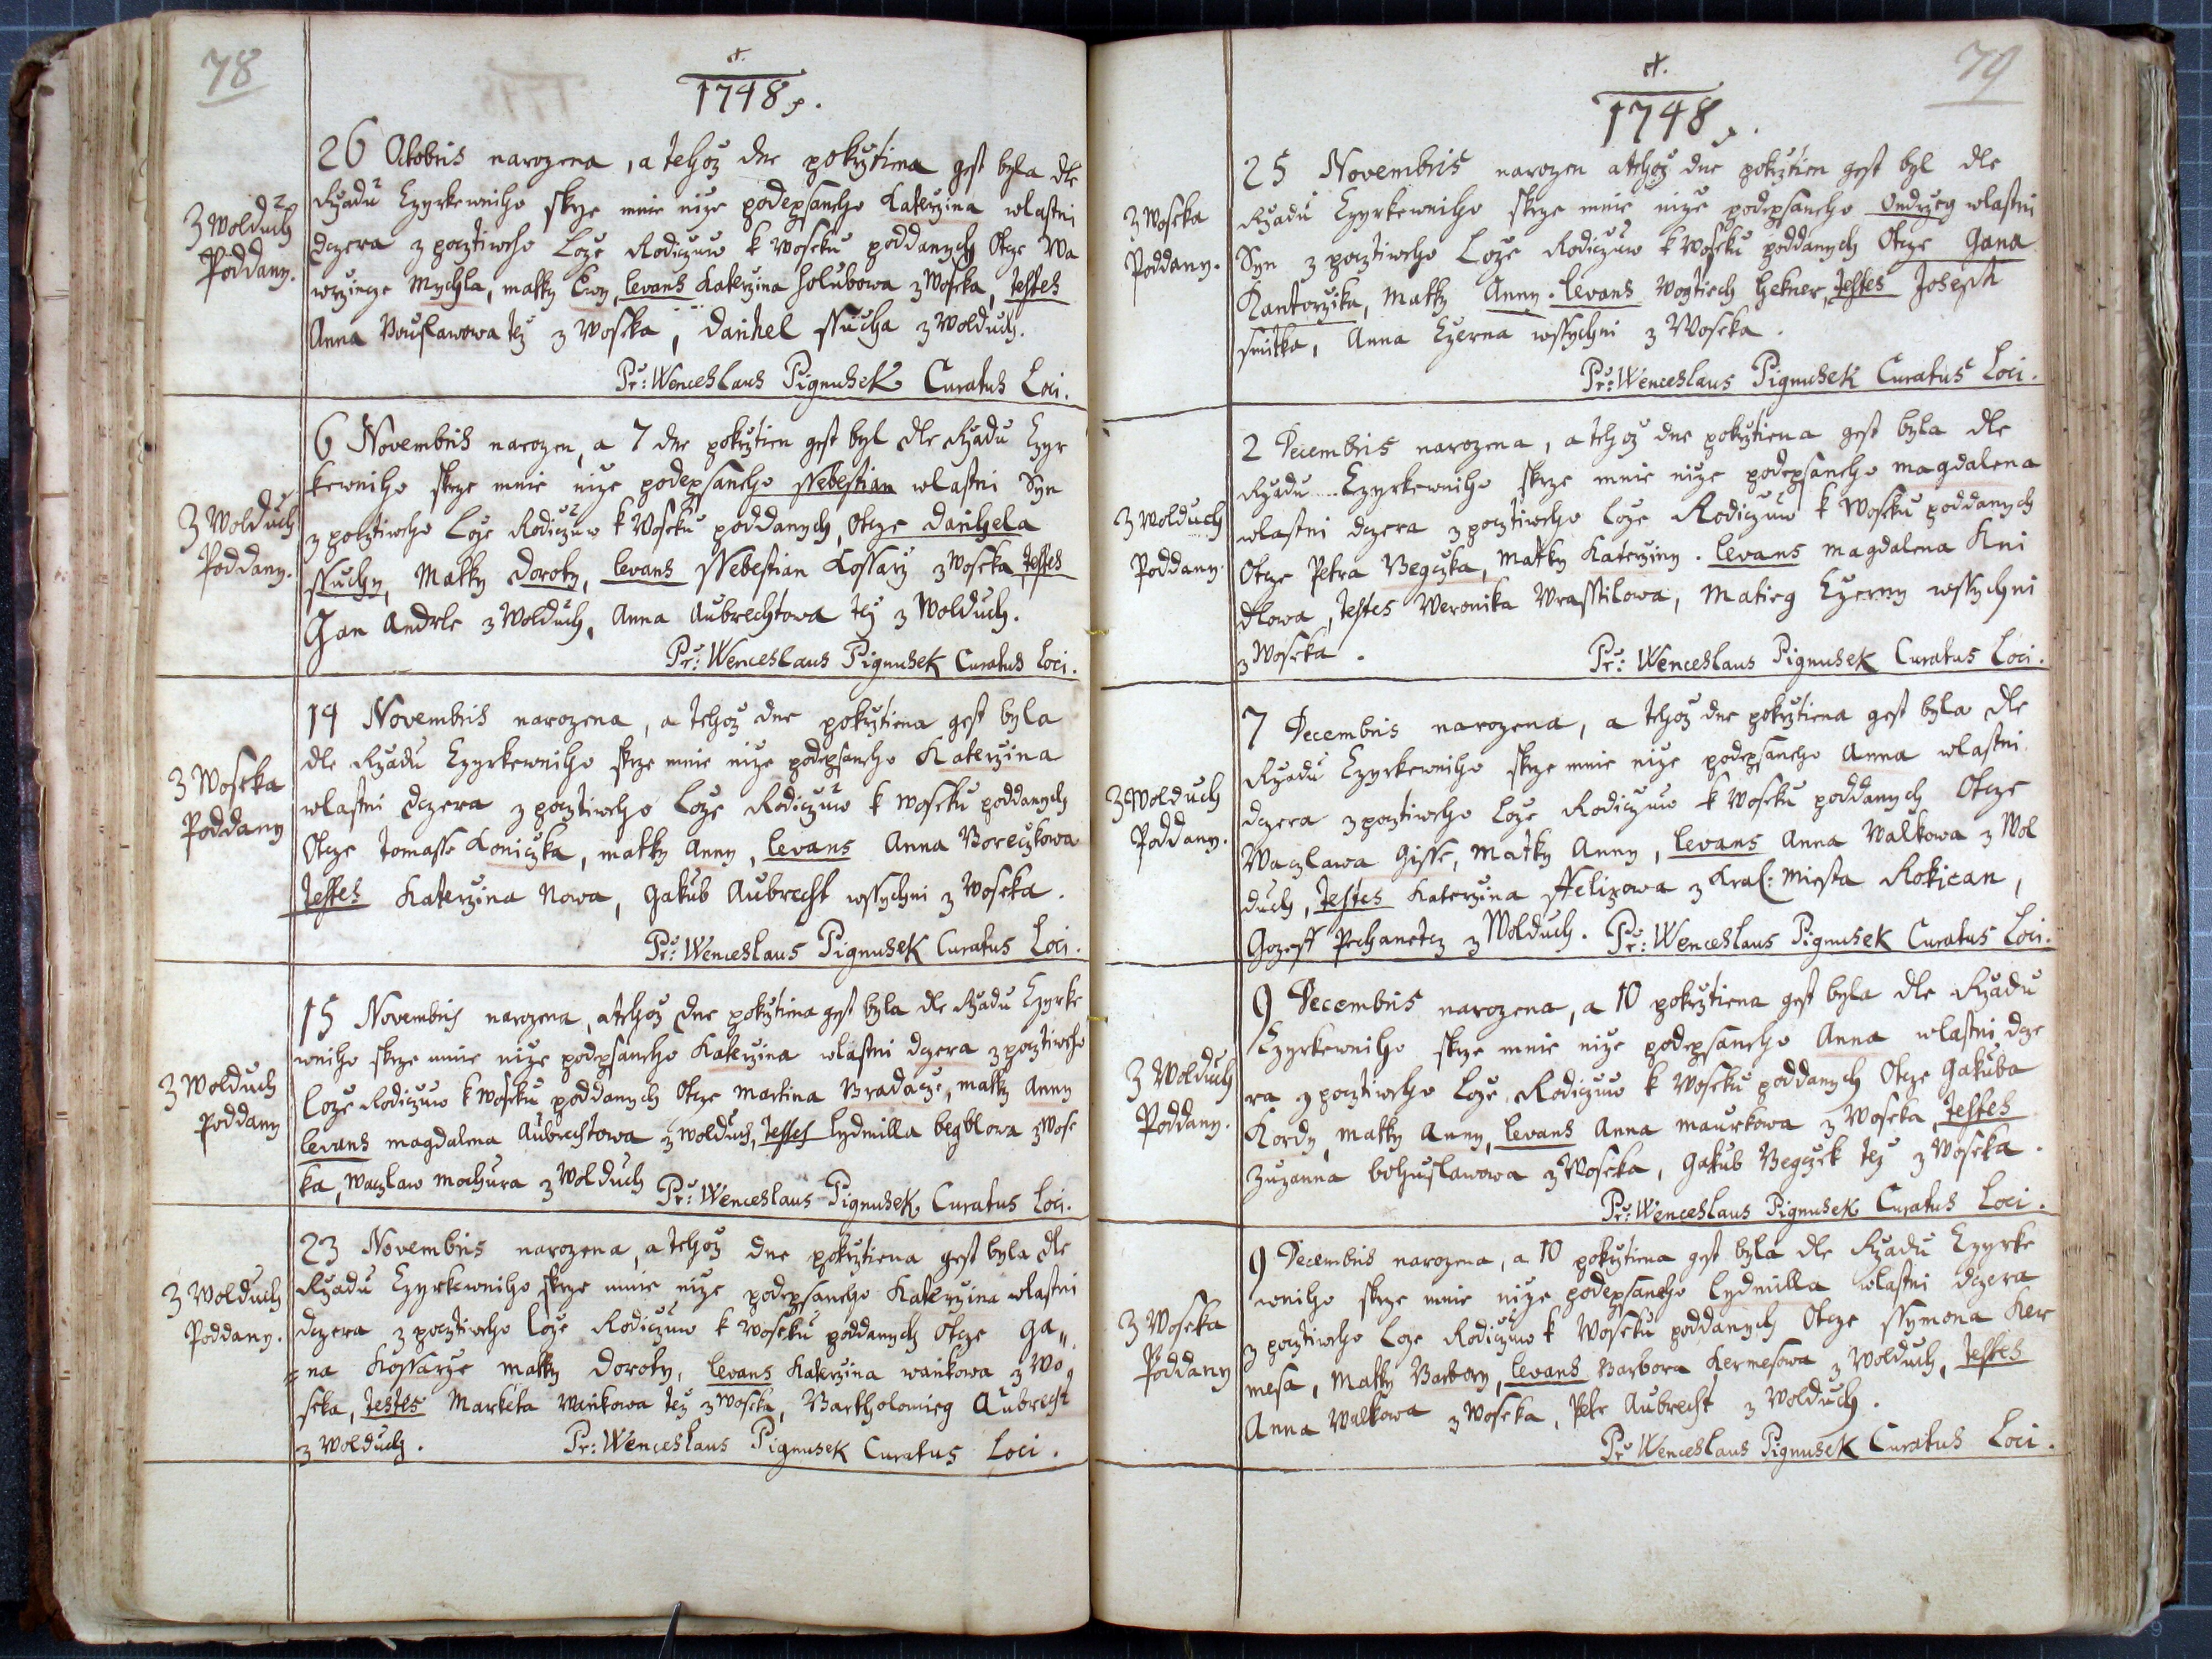 78
1748
26 Octobris narozena, a tehoz dne pokrztiena gest byla dle
Z Wolduch
Poddany.
Rzadu Czyrkewniho skrze mnie nize podepsaneho Katerzina wlastni
dczera z pocztiweho Loze Rodiczuw k Woseku poddanych Otcze Wa
wrzincze Mychla, matky Ewy, levans Katerzina Holubowa z Woseka, testes
Anna Bouslawowa tez z Woseka, Danihel Ssucha z Wolduch.
Pr: Wenceslaus Pignusek Curatus Loci.
6 Novembris narozen, a 7 dne pokrztien gest byl dle Rzadu Czyr
Z Wolduch
Poddany.
kewniho skrze mnie nize podepsaneho Ssebestian wlastni Syn
z pocztiweho Loze Rodiczuw k Woseku poddanych, Otcze Danihela
Ssuchy, Matky Doroty, levans Ssebestian Kossarz z Woseka, testes
Gan Andrle z Wolduch, Anna Aubrechtowa tez z Wolduch.
Pr: Wenceslaus Pignusek Curatus Loci.
14 Novembris narozena, a tehoz dne pokrztiena gest byla
Z Woseka
Poddany
dle Rzadu Czyrkewniho skrze mnie nize podepsaneho Katerzina
wlastni dczera z pocztiweho Loze Rodiczuw k Woseku poddanych
Otcze Tomasse Koniczka, matky Anny, levans Anna Boreczkowa
testes Katerzina Nowa, Gakub Aubrecht wssychni z Woseka.
Pr: Wenceslaus Pignusek Curatus Loci.
15 Novembris narozena, a tehoz dne pokrztiena gest byla dle Rzadu Czyrke
Z Wolduch
Poddany
wniho skrze mnie nize podepsaneho Katerzina wlastni dczera z pocztiweho
Loze Rodiczuw k Woseku poddanych Otcze Martina Bradacze, matky Anny
levans Magdalena Aubrechtowa z Wolduch, testes Lydmilla Begblowa z Wose
ka, Waczlaw Mochura z Wolduch
Pr: Wenceslaus Pignusek Curatus Loci.
23 Novembris narozena, a tehoz dne pokrztiena gest byla dle
Z Wolduch
Poddany.
Rzadu Czyrkewniho skrze mnie nize podepsaneho Katerzina wlastni
dczera z pocztiweho loze Rodiczuw k Woseku poddanych Otcze Ga„
=na Kossarze matky Doroty, levans Katerzina Wankowa z Wo„
seka, testes Marketa Wankowa tez z Woseka, Bartholomieg Aubrecht
z Wolduch. Pr: Wenceslaus Pignusek Curatus Loci.
79
1748
25 Novembris narozen a tehoz dne pokrztien gest byl dle
Z Woseka
Poddany.
Rzadu Czyrkewniho skrze mnie nize podepsaneho Ondrzeg wlastni
Syn z pocztiweho Loze Rodiczuw k Woseku poddanych Otcze Gana
Kantorzika, Matky Anny. levans Wogtiech Hekner, testes Joseph
Smitka, Anna Czerna wssychni z Woseka.
Pr: Wenceslaus Pignusek Curatus Loci.
2 Decembris narozena, a tehoz dne pokrztiena gest byla dle
Z Wolduch
Poddany.
Rzadu Czyrkewniho skrze mnie nize podepsaneho Magdalena
wlastni dczera z pocztiweho loze Rodiczuw k Woseku poddanych
Otcze Petra Begczka, Matky Katerziny. levans Magdalena Kni
dlowa, testes Weronika Wrasstilowa, Matieg Czerny wssychni
z Woseka. Pr: Wenceslaus Pignusek Curatus Loci.
7 Decembris narozena, a tehoz dne pokrztiena gest byla dle
Z Wolduch
Poddany.
Rzadu Czyrkewniho skrze mnie nize podepsaneho Anna wlastni
dczera z pocztiweho Loze Rodiczuw k Woseku poddanych Otcze
Waczlawa Gisse, Matky Anny, levans Anna Walkowa z Wol
duch, testes Katerzina Helizowa z Kral: Miesta Rokican,
Gozeff Pechanetcz z Wolduch. Pr: Wenceslaus Pignusek Curatus Loci.
9 Decembris narozena, a 10 pokrztiena gest byla dle Rzadu
Z Wolduch
Poddany.
Czyrkewniho skrze mnie nize podepsaneho Anna wlastni dcze
ra z pocztiweho Loze Rodiczuw k Woseku poddanych Otcze Gakuba
Kordy, matky Anny, levans Anna Maurkowa z Woseka, testes
Zuzanna Bohuslawowa z Woseka, Gakub Begczek tez z Woseka.
Pr: Wenceslaus Pignusek Curatus Loci.
9 Decembris narozena, a 10 pokrztiena gest byla dle Rzadu Czyrke
Z Woseka
Poddany
wniho skrze mnie nize podepsaneho Lydmilla wlastni dczera
z pocztiweho Loze Rodiczuw k Woseku poddanych Otcze Ssymona Ker
mesa, Matky Barbory, levans Barbora Kermesowa z Wolduch, testes
Anna Walkowa z Woseka, Petr Aubrecht z Wolduch.
Pr: Wenceslaus Pignusek Curatus Loci.